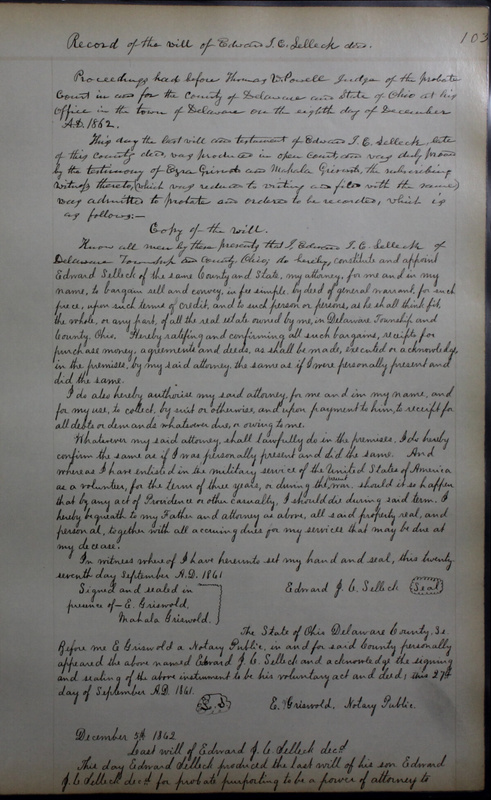 103
Record of the will of Edward J. C. Selleck decd.
Proceedings had before Thomas W. Powell Judge of the probate
Court in and for the County of Delaware and State of Ohio at his
office in the town of Delaware on the eighth day of December
A.D. 1862.
This day the last will and testament of Edward J. C. Selleck, late
of this County decd, was produced in open Court and was duly proven
by the testimony of Ezra Griswold and Mahala Griswold, the subscribing
witness thereto, (which was reduced to writing and filed with the same)
was admitted to probate and ordered to be recorded, which is
as follows:-
Copy of the will.
Know all men by these presents that I Edward J. C. Selleck of
Delaware Township and County Ohio, do hereby, constitute and appoint
Edward Selleck of the same County and State, my attorney, for me and in my
name, to bargain sell and convey, in fee simple, by deed of general warrant, for such
price, upon such terms of credit, and to such person or persons, as he shall think fit,
the whole, or any part, of all the real estate owned by me, in Delaware Township, and
County, Ohio. Hereby ratifying and confirming all such bargains, receipts for
purchase money, agreements and deeds, as shall be made, executed or acknowledge,
in the premises, by my said attorney, the same as if I were personally present and
did the same.
I do also hereby authorise my said attorney, for me and in my name, and
for my use, to collect, by suit or otherwise, and upon payment to him, to receipt for
all debts or demands whatever due, or owing to me.
Whatever my said attorney, shall lawfully do in the premises, I do hereby
confirm the same as if I was personally present and did the same. And
whereas I have enlisted in the military service of the United States of America
as a volunteer, for the term of three years, or during the present war. should it so happen
that by any act of Providence or other casualty, I should die during said term. I
hereby bequeath to my Father and attorney as above, all said property, real, and
personal, together with all accruing dues for my services that may be due at
my decease.
In witness whereof I have hereunto set my hand and seal, this twenty
seventh day September A.D. 1861
Signed and sealed in Edward J. C. Selleck Seal
presence of - E. Griswold,
Mahala Griswold.
The State of Ohio Delaware County, Ss.
Before me E Griswold a Notary Public, in and for said County personally
appeared the above named Edward J. C. Selleck and acknowledge the signing
and sealing of the above instrument to be his voluntary act and deed; this 27th
day of September A.D. 1861.
L. S. E. Griswold, Notary Public.
December 5th 1862
Last will of Edward J. C. Selleck decd
This day Edward Selleck produced the last will of his son Edward
J. C. Selleck decd for probate purporting to be a power of attorney to